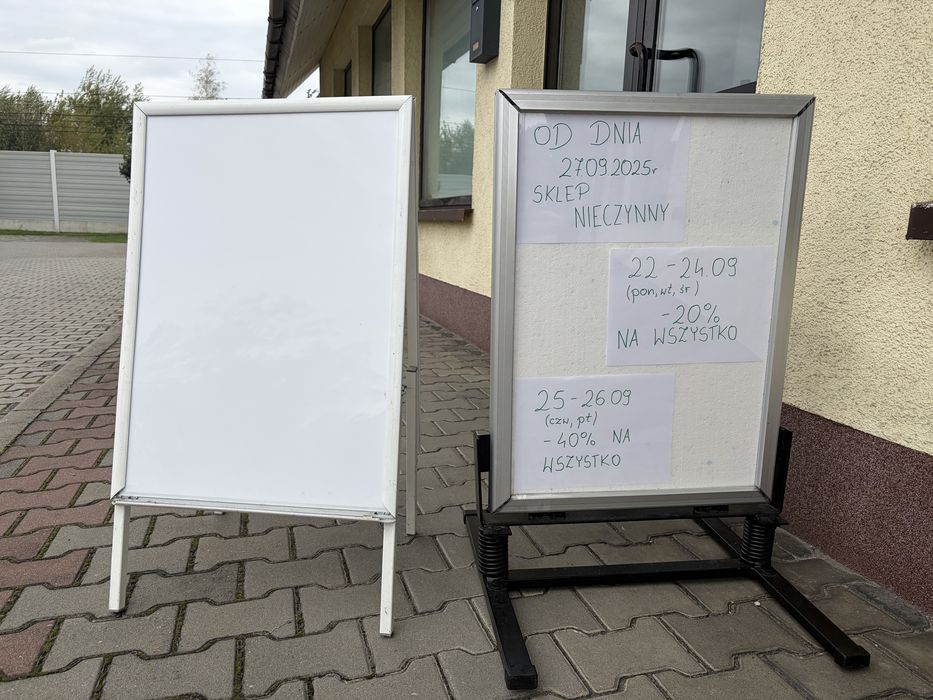 OD DNIA
27.09.2025r
SKLEP
NIECZYNNY
22-24.09
(pon, wt, śr)
-20%
NA WSZYSTKO
25-26.09
(czw, pt)
-40% NA
WSZYSTKO